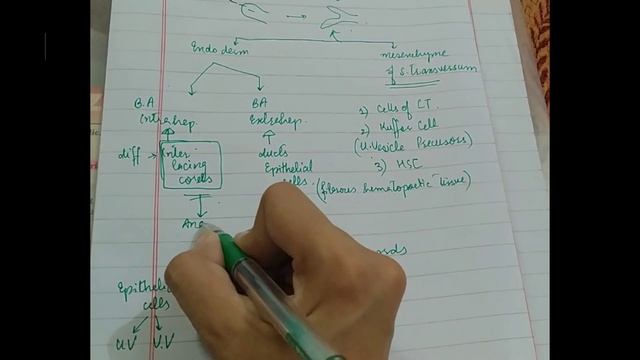 Endoderm
mesenchyme
of S. Transversum
B.A
Intrahep.
BA
Extrahep.
diff
inter
lacing
cords
ducts
Epithelial
cells.
1) Cells of CT.
2) Kuffer Cell
(U.Vesicle Precusors)
3) HSC
(fibrous hematopoetic tissue)
Ana
Epithelial
cells
U.V
V.V